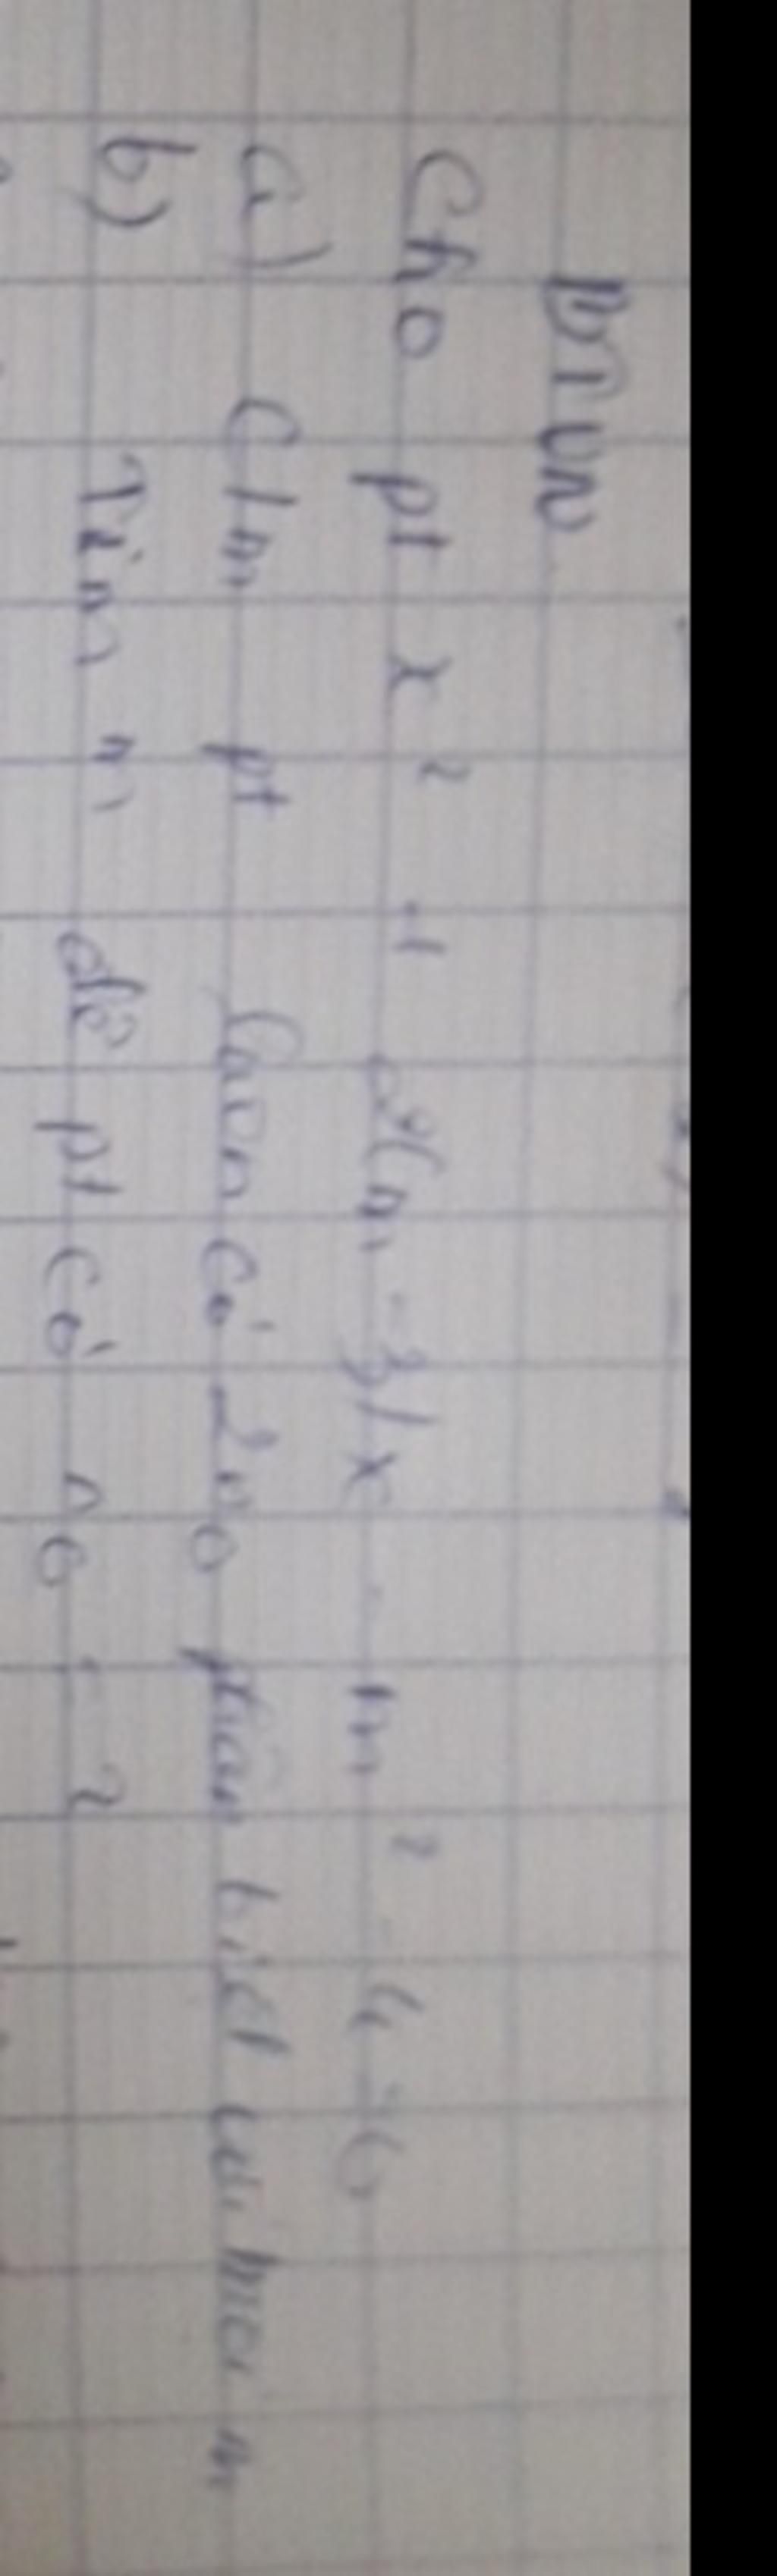 BTVN
Cho pt x² + 2(m - 3)x - m² - 4 = 0
a) C/m pt luôn có 2 n0 phân biệt với mọi m
b) Tìm m để pt có n0 = 2